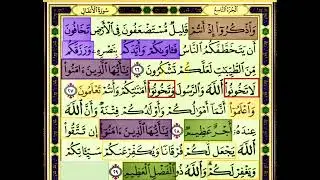 الجزء التاسع
سورة الأنفال
وَٱذْكُرُوٓا۟ إِذْ أَنتُمْ قَلِيلٌ مُّسْتَضْعَفُونَ فِى ٱلْأَرْضِ تَخَافُونَ
أَن يَتَخَطَّفَكُمُ ٱلنَّاسُ فَـَٔاوَىٰكُمْ وَأَيَّدَكُم بِنَصْرِهِۦ وَرَزَقَكُم
مِّنَ ٱلطَّيِّبَـٰتِ لَعَلَّكُمْ تَشْكُرُونَ ٢٦ يَـٰٓأَيُّهَا ٱلَّذِينَ ءَامَنُوا۟
لَا تَخُونُوا۟ ٱللَّهَ وَٱلرَّسُولَ وَتَخُونُوٓا۟ أَمَـٰنَـٰتِكُمْ وَأَنتُمْ تَعْلَمُونَ ٢٧
وَٱعْلَمُوٓا۟ أَنَّمَآ أَمْوَٰلُكُمْ وَأَوْلَـٰدُكُمْ فِتْنَةٌ وَأَنَّ ٱللَّهَ
عِندَهُۥٓ أَجْرٌ عَظِيمٌ ٢٨ يَـٰٓأَيُّهَا ٱلَّذِينَ ءَامَنُوٓا۟ إِن تَتَّقُوا۟
ٱللَّهَ يَجْعَل لَّكُمْ فُرْقَانًا وَيُكَفِّرْ عَنكُمْ سَيِّـَٔاتِكُمْ
وَيَغْفِرْ لَكُمْ وَٱللَّهُ ذُو ٱلْفَضْلِ ٱلْعَظِيمِ ٢٩